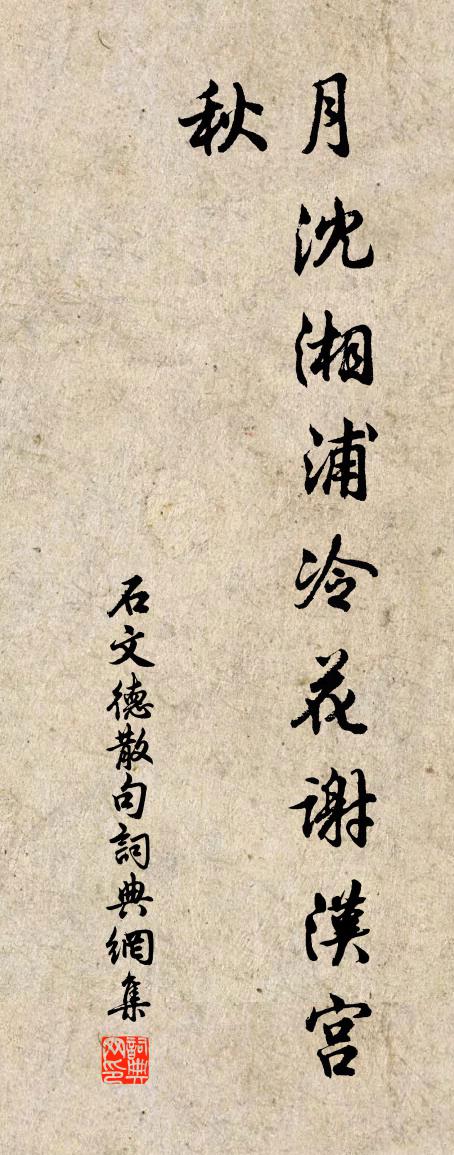 月沈湘浦冷花謝漢宮
秋
石文德散句詞典網集
詞典
网印